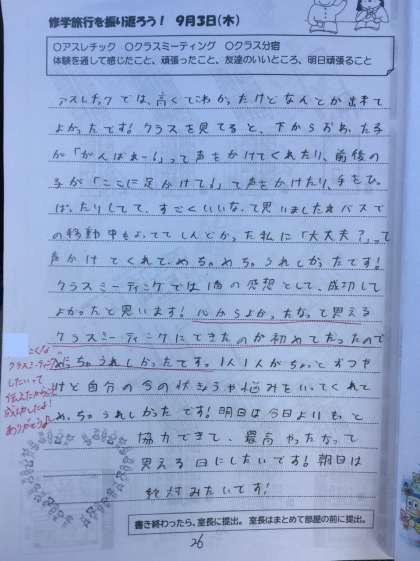 修学旅行を振り返ろう! 9月3日(木)
○アスレチック ○クラスミーティング ○クラス分宿
体験を通して感じたこと、頑張ったこと、友達のいいところ、明日頑張ること
アスレチックでは、高くてこわかったけどなんとか出来て
よかったです!クラスを見てると、下からおわった子
が「がんばれー!」って声をかけてくれたり、前後の
子が「ここに足かけて!」て声をかけたり、手をひっ
ぱったりしてて、すごくいいなって思いました バスで
の移動中もよっててしんどかった私に「大丈夫?」って
声かけてくれて、めちゃめちゃうれしかったです!
クラスミーティングでは1個の感想として、成功して
よかったと思います!心からよかったなって思える
クラスミーティングにできたのが初めてだったので
めっちゃうれしかったです。1人1人がちょっとずつや
けど自分の今の状きょうや悩みをいってくれて
めっちゃうれしかったです!明日は今日よりもっと
協力できて、最高やったなって
思える日にしたいです!朝日は
絶対みたいです!
こんな
クラスミーティング
したいって
伝えたから
成功したよ!
ありがとう
書き終わったら、室長に提出。室長はまとめて部屋の前に提出。
26